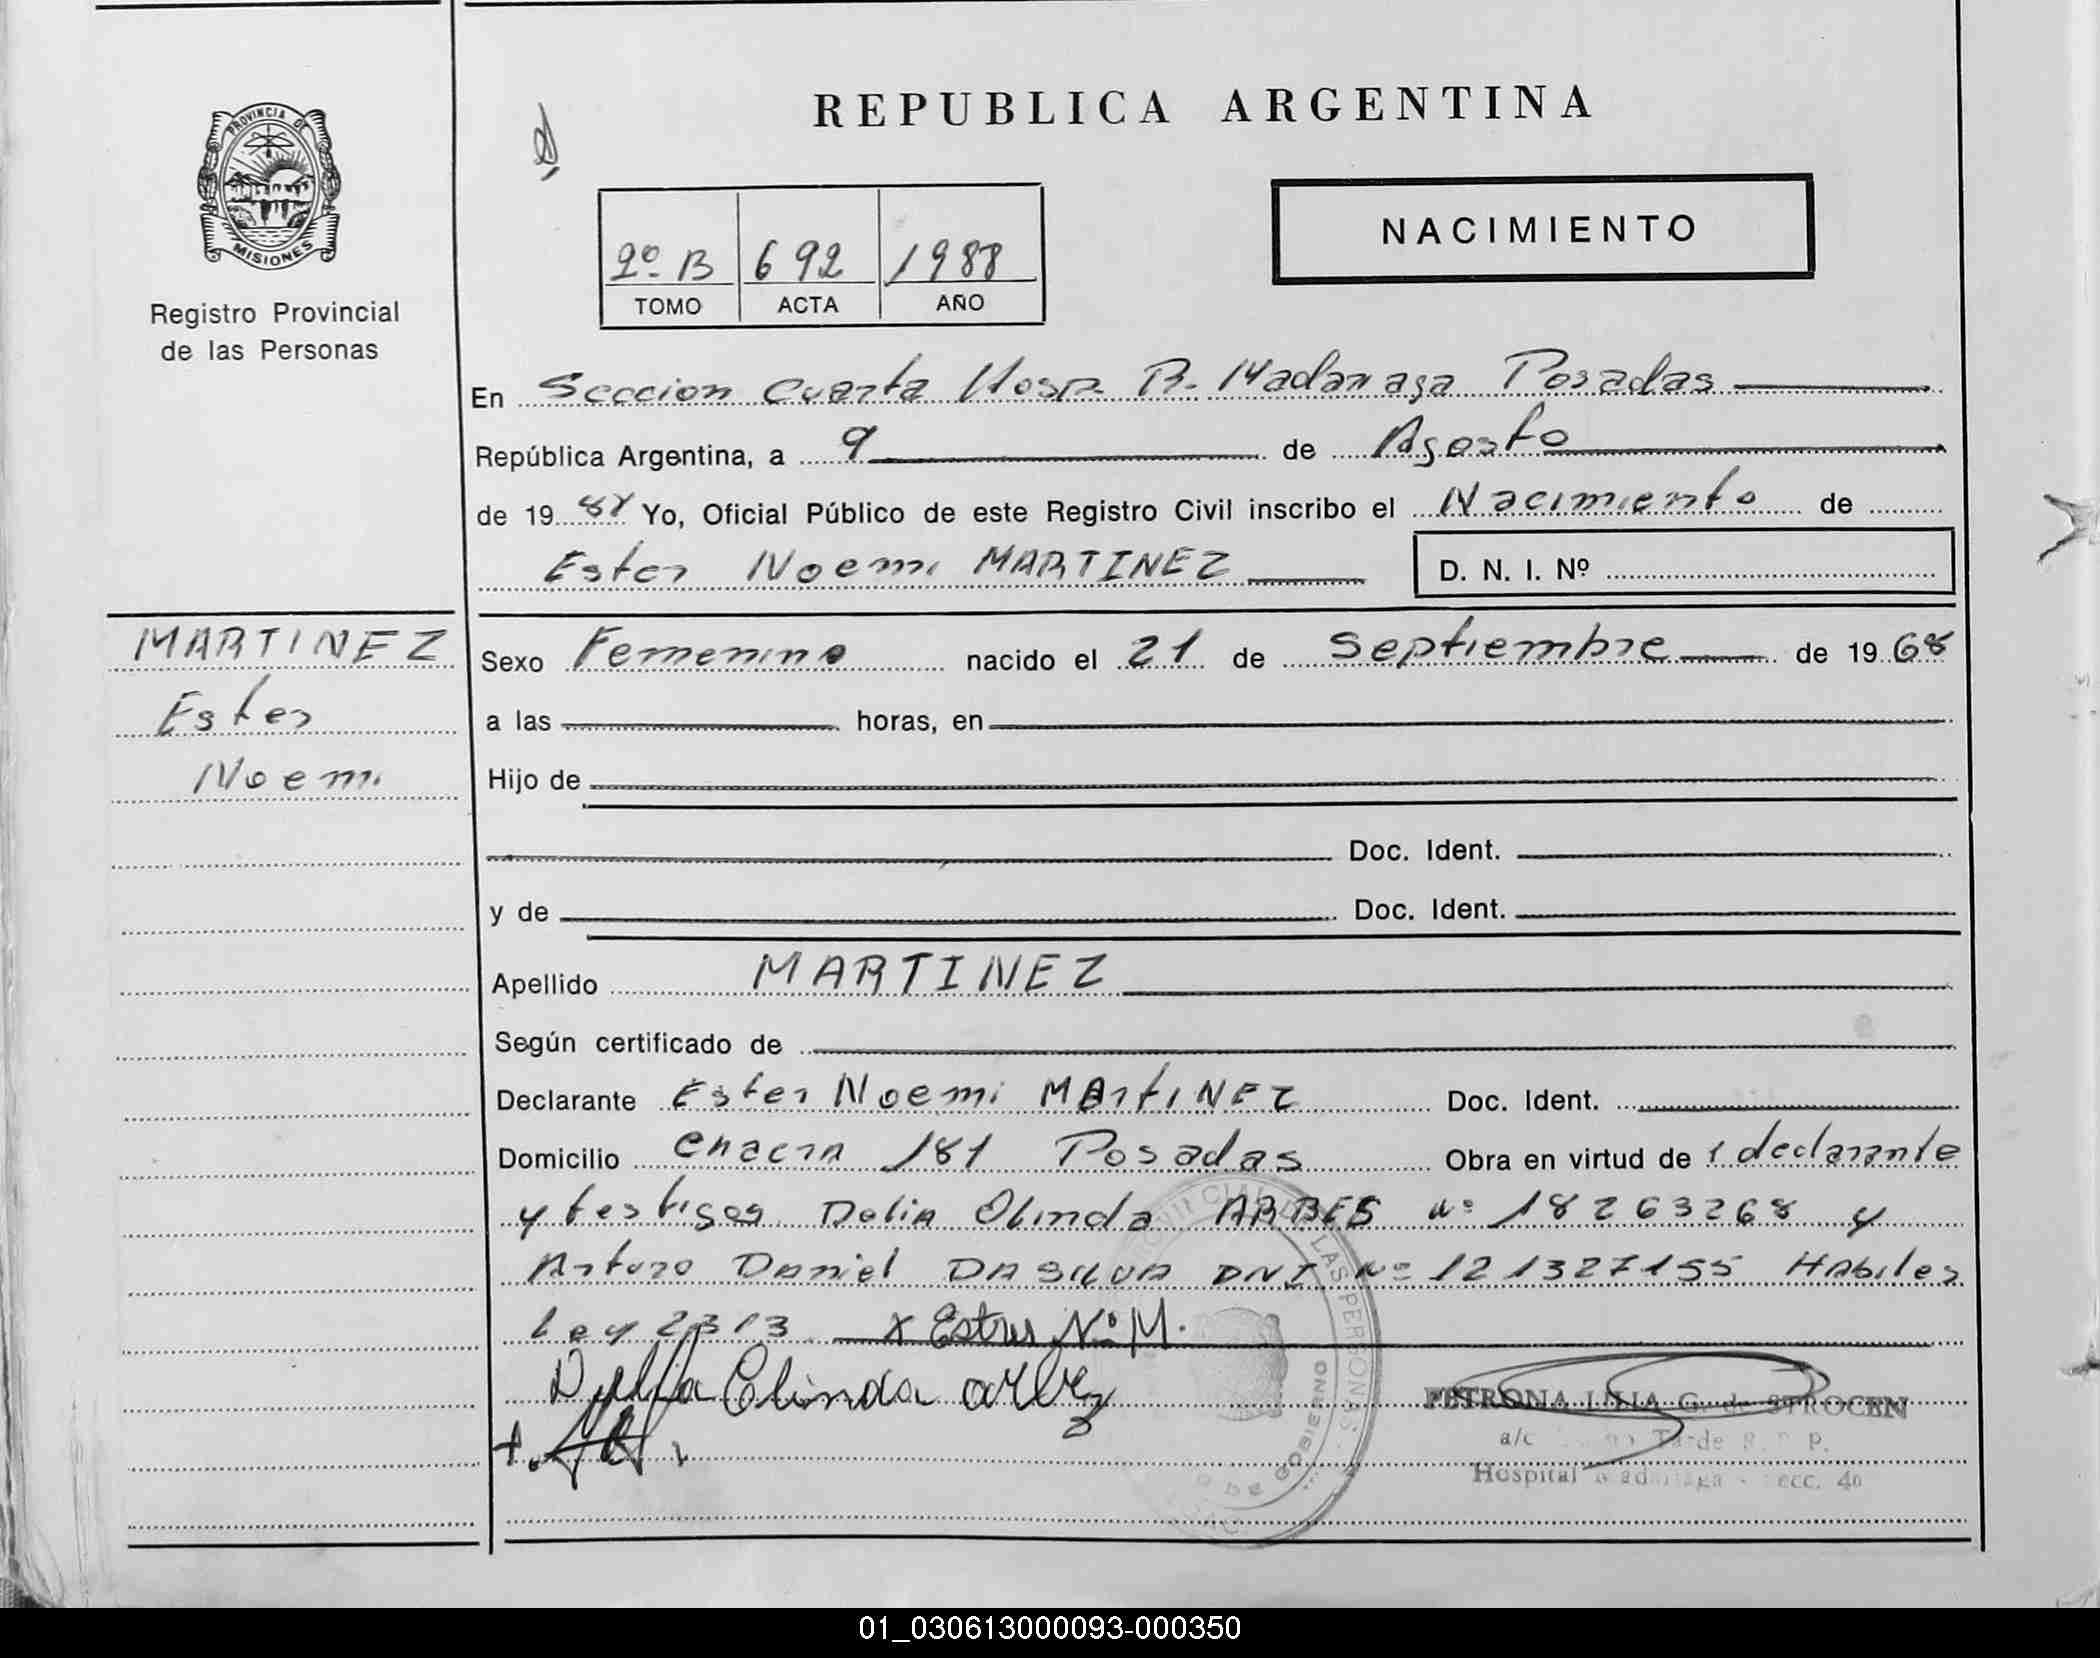 REPUBLICA ARGENTINA
PROVINCIA DE
MISIONES
Registro Provincial
de las Personas
NACIMIENTO
2º B 692 1988
TOMO ACTA AÑO
En Seccion Cuarta Hosp. R. Madariaga Posadas
República Argentina, a 9 de Agosto
de 19 88 Yo, Oficial Público de este Registro Civil inscribo el Nacimiento de
Ester Noemi MARTINEZ D. N. I. Nº
MARTINEZ
Ester
Noemi
Sexo Femenino nacido el 21 de Septiembre de 19 68
a las horas, en
Hijo de
Doc. Ident.
y de Doc. Ident.
Apellido MARTINEZ
Según certificado de
Declarante Ester Noemi MARTINEZ Doc. Ident.
Domicilio Chacra 181 Posadas Obra en virtud de 1 declarante
y testigos Delia Olinda ARBES nº 18263268 y
Arturo Daniel DASILVA DNI Nº 121327155 Habiles
Ley 2313 x Ester N. M.
Olinda
PETRONA LILIA G. de STROCEN
a/c Tarde R. P.
Hospital Madariaga - Secc. 4a
LAS PERSONAS
DE GOBIERNO
01_030613000093-000350